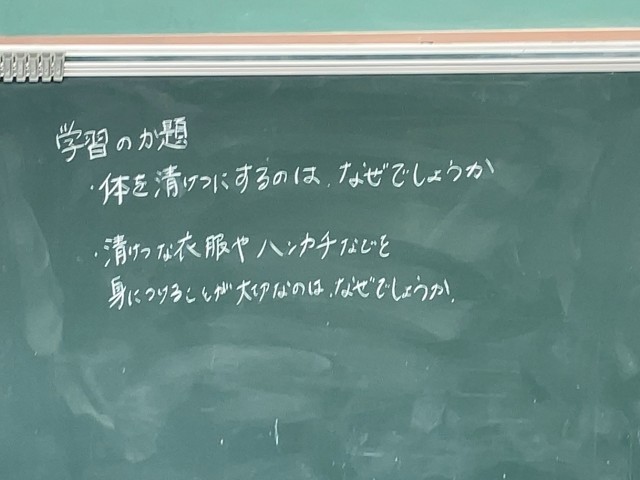 学習のか題
・体を清けつにするのは、なぜでしょうか
・清けつな衣服やハンカチなどを
身につけることが大切なのは、なぜでしょうか。